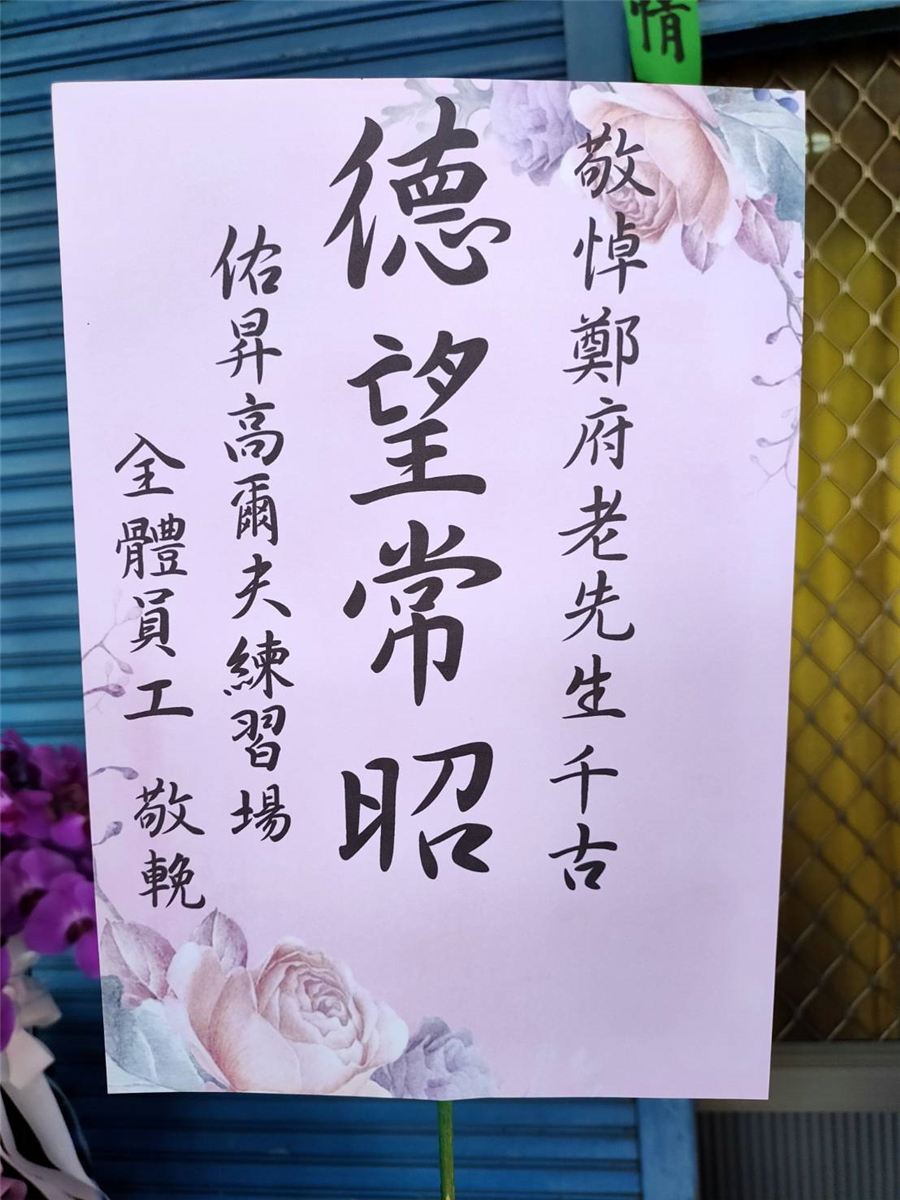 敬悼鄭府老先生千古
德望常昭
佑昇高爾夫練習場
全體員工 敬輓
情